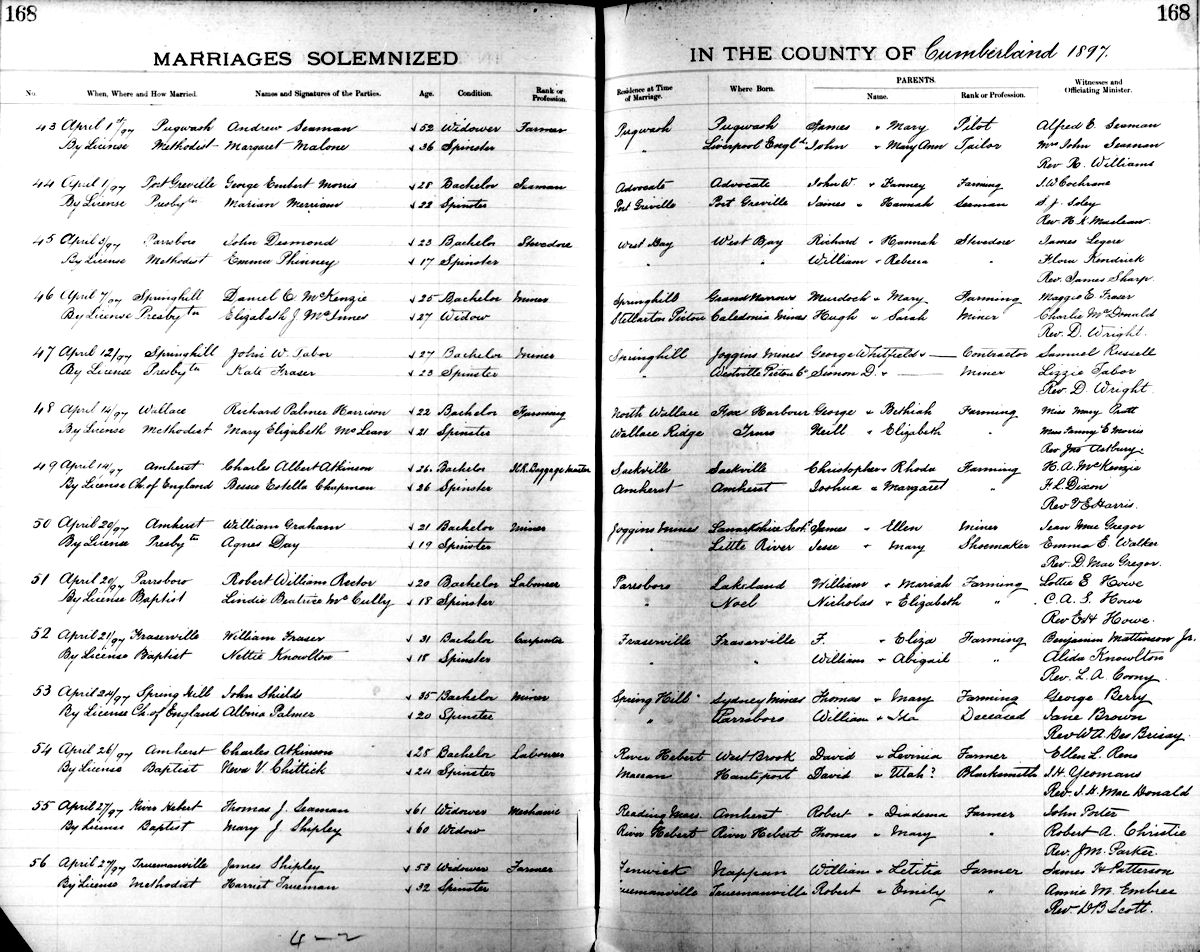 168 168
MARRIAGES SOLEMNIZED IN THE COUNTY OF Cumberland 1897.
No. When, Where and How Married. Names and Signatures of the Parties. Age. Condition. Rank or Profession. Residence at Time of Marriage. Where Born. PARENTS. Name. Rank or Profession. Witnesses and Officiating Minister.
43 April 1st/97 Pugwash Andrew Seaman 52 Widower Farmer Pugwash Pugwash James " Mary Pilot Alfred E. Seaman
By License Methodist Margaret Malone 36 Spinster " Liverpool Engld John " Mary Ann Tailor Mrs John Seaman
Rev R. Williams
44 April 1/97 Port Greville George Embert Morris 28 Bachelor Seaman Advocate Advocate John W. " Fanney Farming J.W Cochrane
By License Presbytn Marian Merriam 22 Spinster Port Greville Port Greville James " Hannah Seaman S. J. Soley
Rev. H. K. Maclean
45 April 3/97 Parrsboro John Desmond 23 Bachelor Stevedore West Bay West Bay Richard " Hannah Stevedore James Legere
By License Methodist Emma Phinney 17 Spinster " " William " Rebecca " Flora Kendrick
Rev. James Sharp.
46 April 7/97 Springhill Daniel C McKenzie 25 Bachelor Miner Springhill Grand Narrows Murdoch " Mary Farming Maggie E Fraser
By License Presbytn Elizabeth J. McInnes 27 Widow Stellarton Pictou Caledonia Mines Hugh " Sarah Miner Charles McDonald
Rev. D. Wright.
47 April 12/97 Springhill John W. Tabor 27 Bachelor Miner Springhill Joggins Mines George Whitfield " — Contractor Samuel Russell
By License Presbytn Kate Fraser 23 Spinster " Westville Pictou Co Simon D. " — Miner Lizzie Tabor
Rev. D. Wright
48 April 14/97 Wallace Richard Palmer Harrison 22 Bachelor Farming North Wallace Fox Harbour George " Bethiah Farming Miss Mary Pratt
By License Methodist Mary Elizabeth McLean 21 Spinster Wallace Ridge Truro Neill " Elizabeth " Miss Fanny E Morris
Rev Jno Astbury
49 April 14/97 Amherst Charles Albert Atkinson 26. Bachelor R.R. Baggage Master Sackville Sackville Christopher " Rhoda Farming H. A. McKenzie
By License Ch. of England Bessie Estella Chapman 26 Spinster Amherst Amherst Joshua " Margaret " F L. Dixon
Rev V E Harris.
50 April 20/97 Amherst William Graham 21 Bachelor Miner Joggins Mines Lanarkshire Scotd James " Ellen Miner Jean MacGregor
By License Presbytn Agnes Day 19 Spinster " Little River Jesse " Mary Shoemaker Emma E. Walker
Rev. D. MacGregor.
51 April 20/97 Parrsboro Robert William Rector 20 Bachelor Labourer Parrsboro Lakeland William " Mariah Farming Lottie E Howe
By License Baptist Lindie Beatrice McCully 18 Spinster " Noel Nicholas " Elizabeth " C. A. S. Howe
Rev E H Howe.
52 April 21/97 Fraserville William Fraser 31 Bachelor Carpenter Fraserville Fraserville F. " Eliza Farming Benjamin Mattinson Jr.
By License Baptist Nettie Knowlton 18 Spinster " " William " Abigail " Alida Knowlton
Rev. L. A. Coony.
53 April 24/97 Spring Hill John Shields 35 Bachelor Miner Spring Hill Sydney Mines Thomas " Mary Farming George Berry
By License Ch. of England Albina Palmer 20 Spinster " Parrsboro William " Ida Deceased Jane Brown
Rev W A Des Brisay.
54 April 26/97 Amherst Charles Atkinson 28 Bachelor Labourer River Hebert West Brook David " Levinia Farmer Ellen L. Rens
By License Baptist Neva V. Chittick 24 Spinster Maccan Hantsport David " Utah? Blacksmith J. H. Yeomans
Rev. J. H. MacDonald
55 April 27/97 River Hebert Thomas J. Seaman 61 Widower Mechanic Reading Mass. Amherst Robert " Diadema Farmer John Porter
By License Baptist Mary J. Shipley 60 Widow River Hebert River Hebert Thomas " Mary " Robert A. Christie
Rev. J.M. Parker.
56 April 27/97 Truemanville James Shipley 53 Widower Farmer Fenwick Nappan William " Letitia Farmer James H Patterson
By License Methodist Harriet Trueman 32 Spinster Truemanville Truemanville Robert " Emily " Annie M. Embree
Rev. D B Scott.
4-2